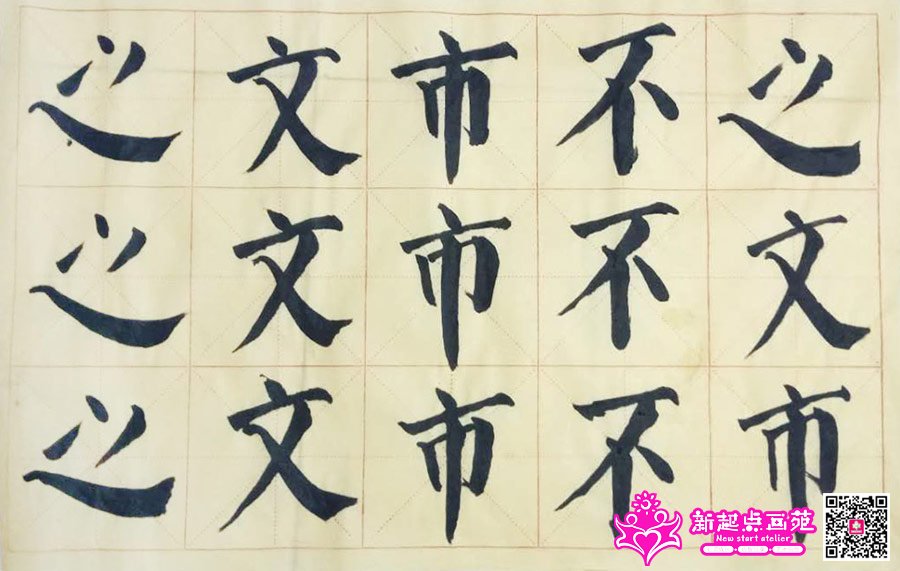 之文市
不不不
市市市
文文文
之之之
新起点画苑
New start atelier